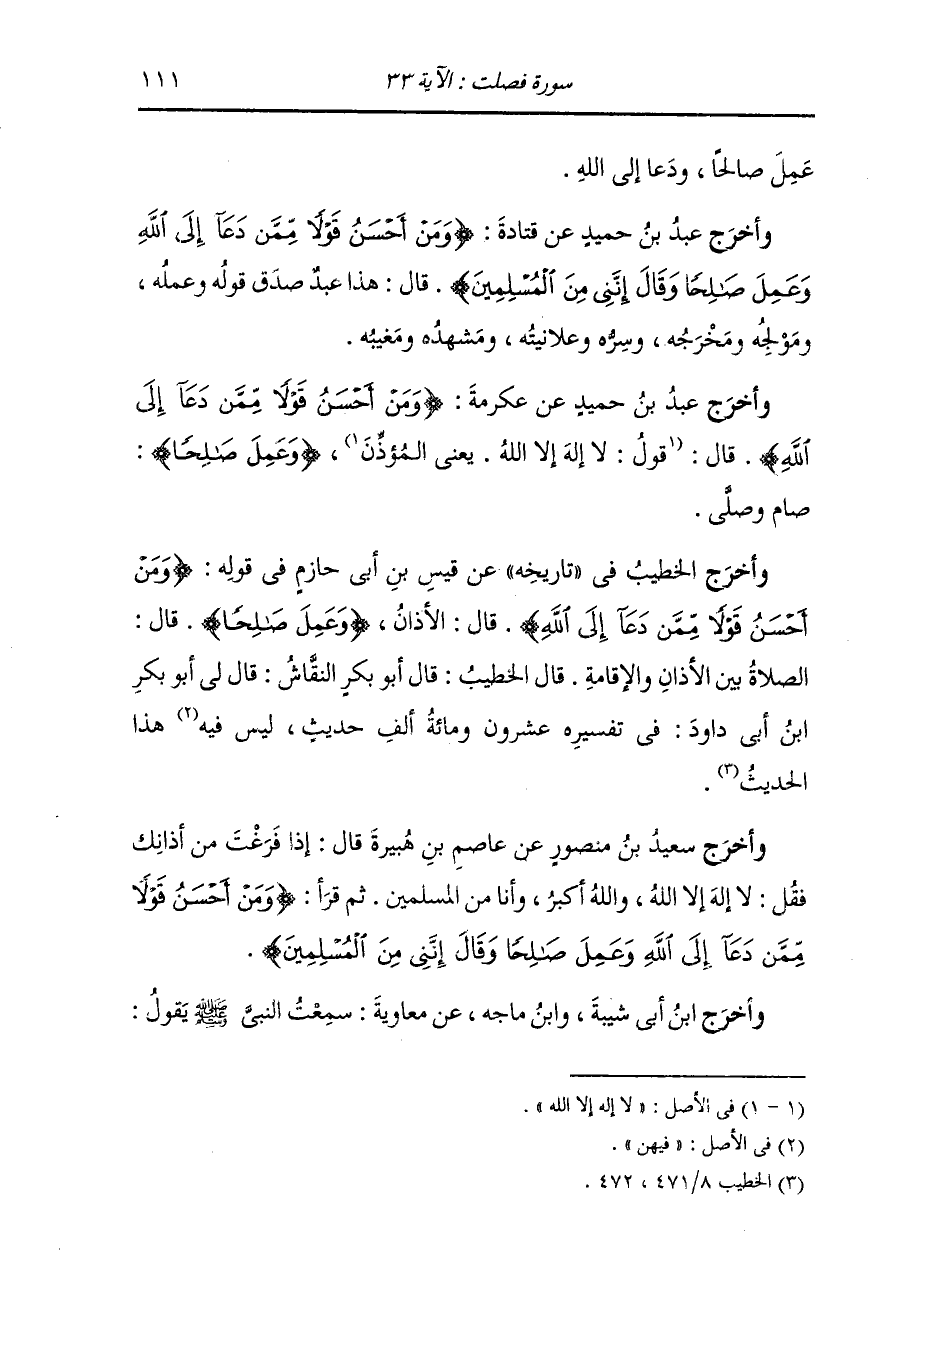 سورة فصلت : الآية ٣٣ ١١١
عَمِلَ صالحًا ، ودَعا إلى اللهِ .
وأخرَج عبدُ بنُ حميدٍ عن قتادةَ : ﴿وَمَنْ أَحْسَنُ قَوْلًا مِّمَّن دَعَآ إِلَى ٱللَّهِ
وَعَمِلَ صَٰلِحًا وَقَالَ إِنَّنِى مِنَ ٱلْمُسْلِمِينَ﴾ . قال : هذا عبدٌ صدَق قولُه وعملُه ،
ومَوْلِجُه ومَخْرَجُه ، وسِرُّه وعلانيتُه ، ومَشهدُه ومَغيبُه .
وأخرَج عبدُ بنُ حميدٍ عن عكرمةَ : ﴿وَمَنْ أَحْسَنُ قَوْلًا مِّمَّن دَعَآ إِلَى
ٱللَّهِ﴾ . قال : (١قولُ : لا إلهَ إلا اللهُ . يعنى المُؤذِّنَ١) ، ﴿وَعَمِلَ صَٰلِحًا﴾ :
صام وصلَّى .
وأخرَج الخطيبُ فى «تاريخِه» عن قيسِ بنِ أبى حازمٍ فى قولِه : ﴿وَمَنْ
أَحْسَنُ قَوْلًا مِّمَّن دَعَآ إِلَى ٱللَّهِ﴾ . قال : الأذانُ ، ﴿وَعَمِلَ صَٰلِحًا﴾ . قال :
الصلاةُ بين الأذانِ والإقامةِ . قال الخطيبُ : قال أبو بكرٍ النقَّاشُ : قال لى أبو بكرِ
ابنُ أبى داودَ : فى تفسيرِه عشرون ومائةُ ألفِ حديثٍ ، ليس فيه(٢) هذا
الحديثُ(٣) .
وأخرَج سعيدُ بنُ منصورٍ عن عاصمِ بنِ هُبيرةَ قال : إذا فَرَغْتَ من أذانِك
فقُل : لا إلهَ إلا اللهُ ، واللهُ أكبرُ ، وأنا من المسلمين . ثم قرَأ : ﴿وَمَنْ أَحْسَنُ قَوْلًا
مِّمَّن دَعَآ إِلَى ٱللَّهِ وَعَمِلَ صَٰلِحًا وَقَالَ إِنَّنِى مِنَ ٱلْمُسْلِمِينَ﴾ .
وأخرَج ابنُ أبى شيبةَ ، وابنُ ماجه ، عن معاويةَ : سمِعْتُ النبىَّ ﷺ يَقولُ :
(١ - ١) فى الأصل : « لا إله إلا الله » .
(٢) فى الأصل : « فيهن » .
(٣) الخطيب ٨/ ٤٧١ ، ٤٧٢ .